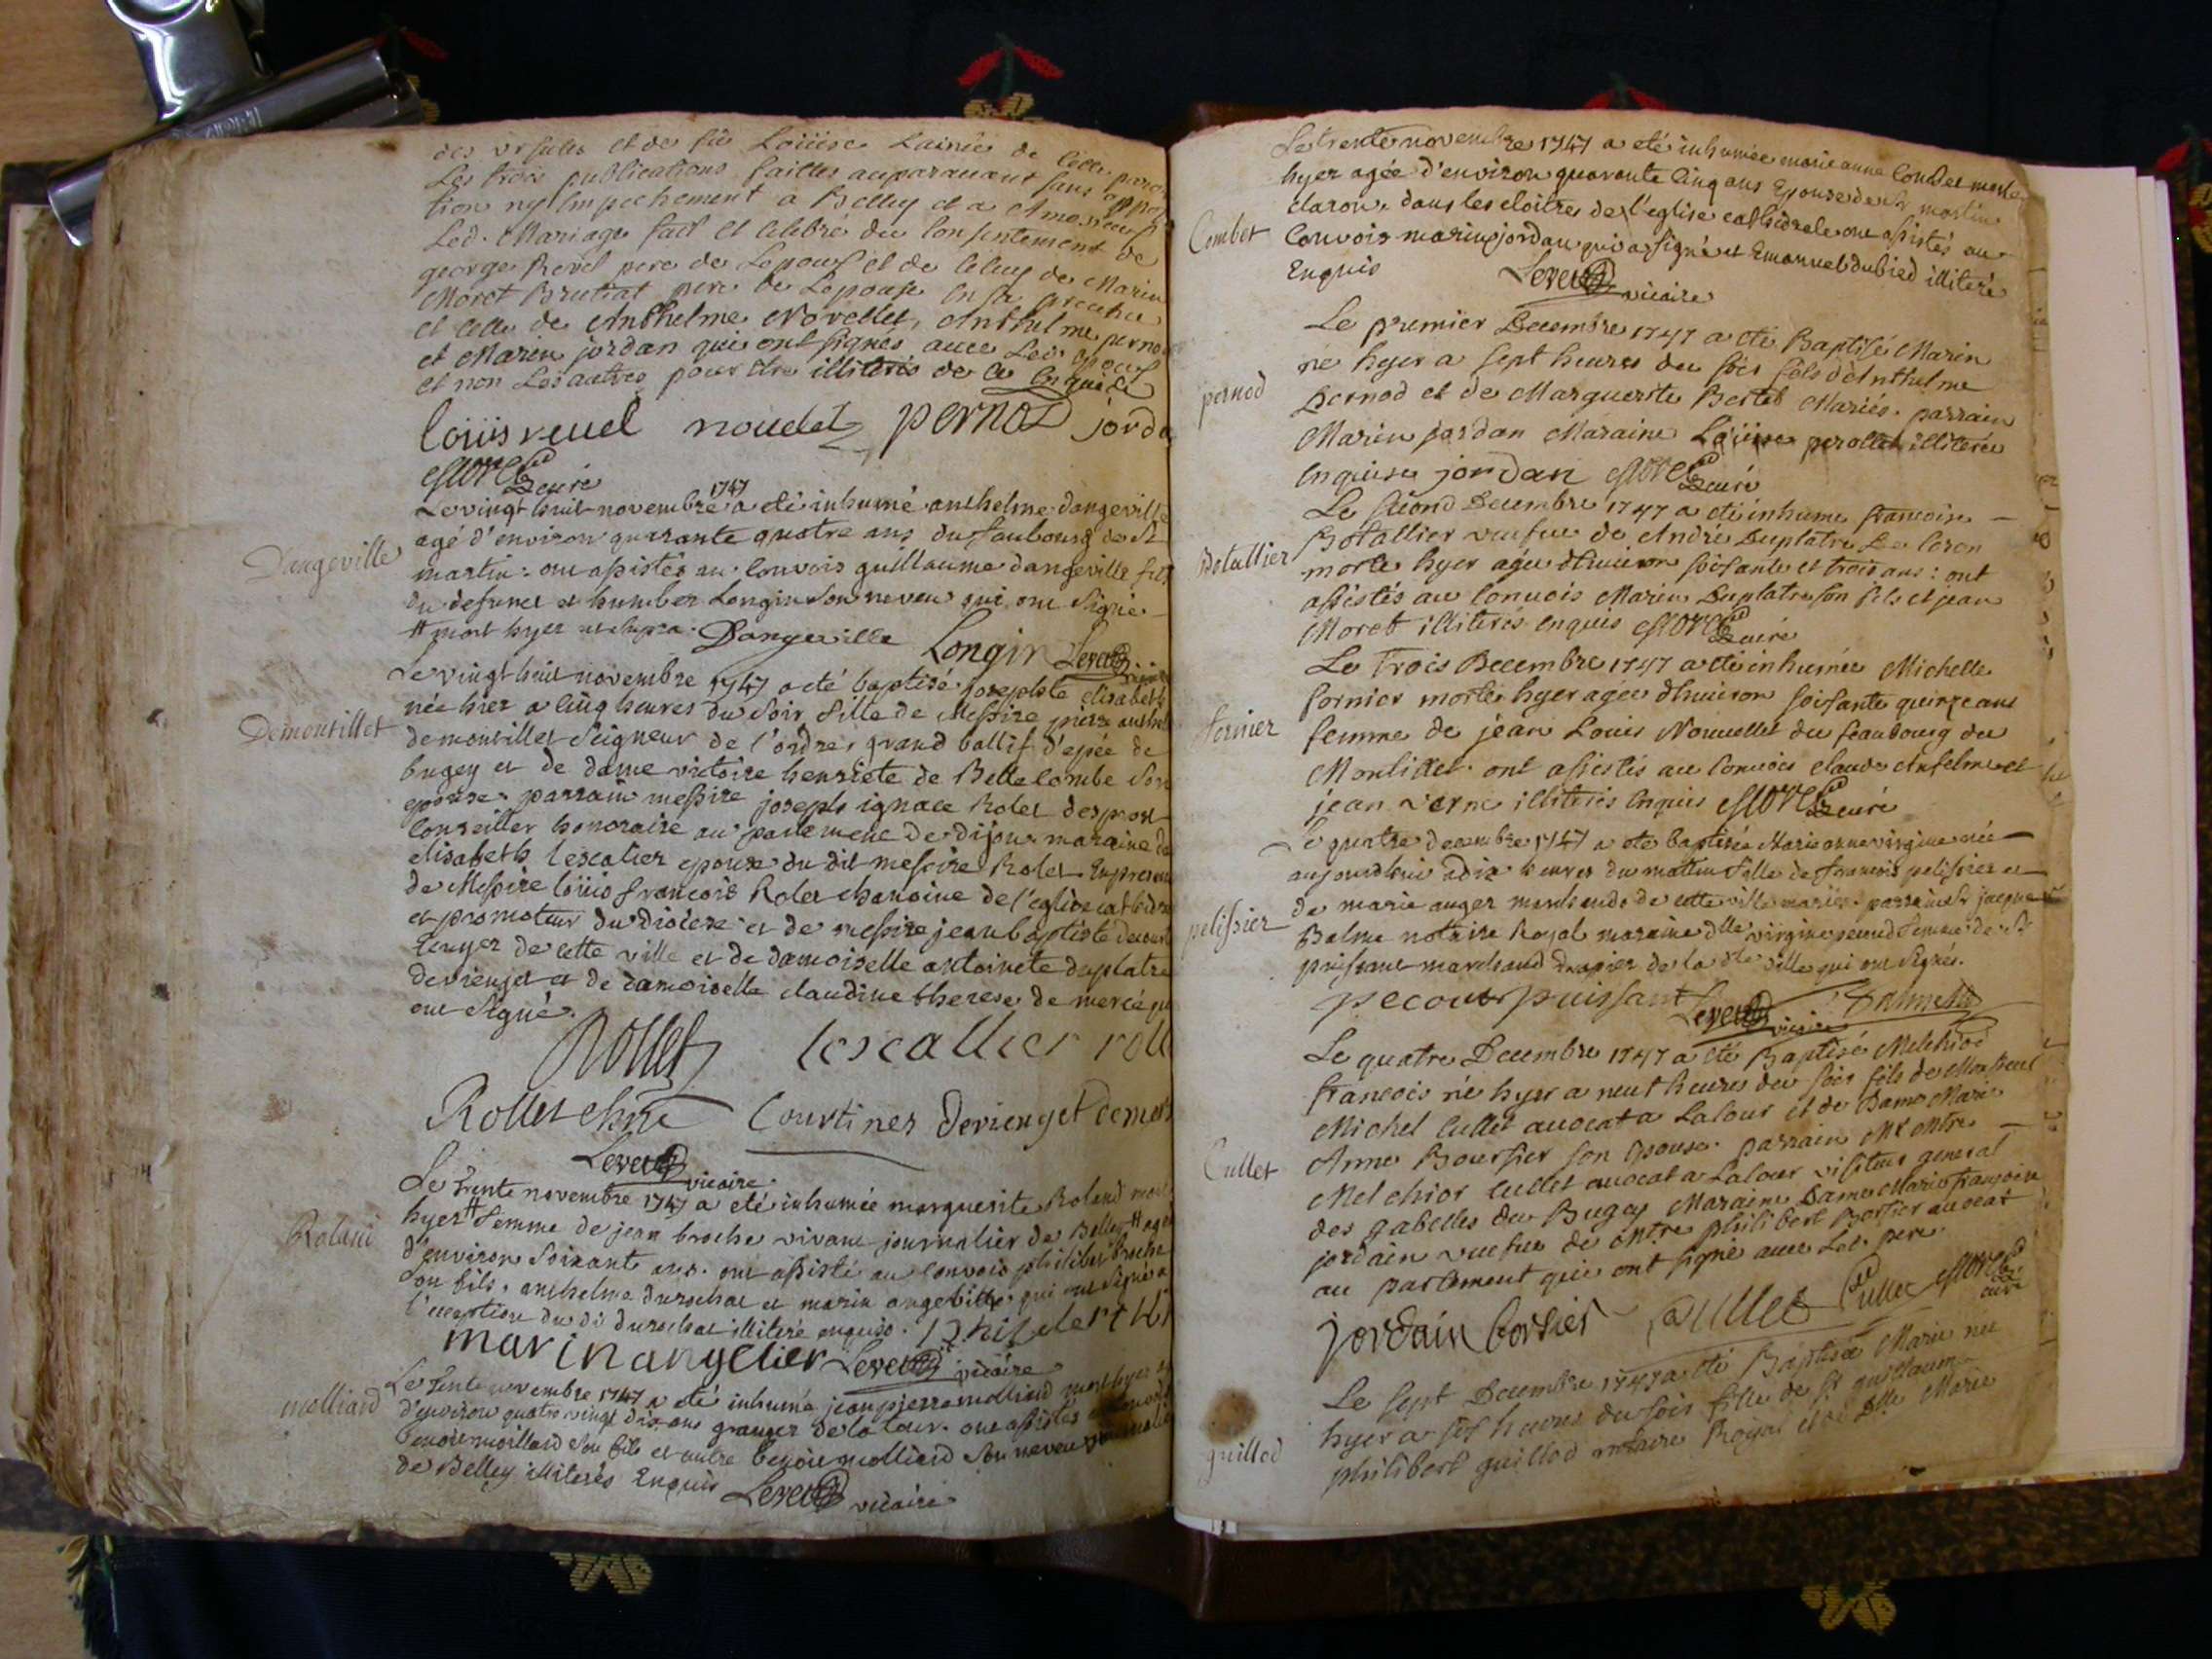 des ursules et de fûe Loüise Lainée de cette paro
Les trois publications faittes auparavant sans oppo
tion ny Empechement a Belley et a
Led. Mariage fait et celebré du Consentement de
george Revel pere de Lepoux et de celuy de Marin
Moret Brutiat pere de Lepouse en sa presence
et celle de Anthelme Novellet, Anthelme perno
et Marin jordan qui ont signés avec Led. epoux
et non Les autres pour être illiterés de ce Enquis
Loüis reuel nouelet pernod jorda
Moret curé
Dangeville
Le vingt huit novembre 1747 a eté inhumé anthelme dangeville
agé d'environ quarante quatre ans du faubourg de St
martin: ont assistés au Convois guillaume dangeville fils
du defunct et humber Longin son neveu qui ont signé
# mort hyer ut supra. Dangeville Longin Levet vicaire
Demontillet
Le vingt huit novembre 1747 a eté baptisé josephte elisabeth
née hier a cinq heures du soir fille de Messire pierre anthel
demontillet Seigneur de l'ordre, grand ballif d'epée de
bugey et de dame victoire henriete de Bellecombe son
epouse. parrain messire joseph ignace Rolet desprost
Conseiller honoraire au parlement de dijon maraine de
elisabeth lescalier epouse du dit messire Rolet En presence
de Messire loüis françois Rolet chanoine de l'eglise cathedra
et promoteur du diocese et de messire jean baptiste decourt
Ecuyer de cette ville et de damoiselle antoinete duplatre
derienget et de damoiselle claudine therese de mercé qui
ont signé.
Rollet lescallier roll
Rollet chne Courtines derienget demer
Levet vicaire
Roland
Le trente novembre 1747 a eté inhumée marguerite Roland mor
hyer # femme de jean broche vivant journalier de Belley # agée
d'environ soixante ans. ont assisté au Convois philiber broche
son fils, anthelme durochat et marin angelier qui ont signé a
l'exception du dit durochat illiteré enquis. philiber
marin angelier Levet vicaire
molliard
Le trente novembre 1747 a eté inhumé jean pierre molliard mort hyer
d'environ quatre vingt dix ans granger de la tour. ont assistés au Convois
benoit moilliard son fils et autre benoit molliard son neveu journalier
de Belley illiterés Enquis Levet vicaire
Combet
Le trente novembre 1747 a eté inhumée marie anne Combet morte
hyer agée d'environ quarante cinq ans Epouse de Sr martin
claron, dans les cloitres de l'eglise cathedrale ont assistés au
Convois marin jordan qui a signé et Emanuel dubied illiteré
Enquis Levet vicaire
pernod
Le premier Decembre 1747 a eté Baptisé Marin
né hyer a sept heures du soir fils d'Anthelme
Pernod et de Marguerite Bertet Mariés. parrain
Marin jordan Maraine Loüise perollet illiterée
Enquise jordan Moret curé
Botallier
Le second Decembre 1747 a eté inhume francoise
Botallier veufue de André Duplatre De Coron
morte hyer agée d'huiron soisante et trois ans: ont
assistés au Conuois Marin Duplatre son fils et jean
Moret illiterés enquis Moret curé
fornier
Le Trois Decembre 1747 a eté inhumée Michelle
fornier morte hyer agée d'huiron soisante quinze ans
femme de jean Louis Nouuellet du feaubourg du
Montillet. ont assistés au conuois claude Anselme et
jean verne illiterés enquis Moret curé
pelissier
Le quatre decembre 1747 a eté baptisée Marie anne virginie née
aujourdhui a dix heures du mattin fille de francois pelissier et
de marie auger marchands de cette ville mariés. parrain Sr jacque
Balme notaire Royal maraine dlle virginie pecoud femme de Sr
puissant marchand drapier de la dte ville qui ont signés.
pecout puissant Levet vicaire Balme
Cullet
Le quatre Decembre 1747 a eté Baptisé Melchiod
francois né hyer a neuf heures du soir fils de Monsieur
Michel Cullet auocat a Lacour et de Dame Marie
Anne Boursier son epouse. parrain Mr
Melchior Cullet auocat a Lacour visiteur general
des gabelles du Bugey Maraine Dame Marie francoise
jordain veufue de philibert Borsier auocat
au parlement qui ont signé auec Led. pere
jordain borsier Cullet Cullet Moret curé
guillod
Le sept Decembre 1747 a eté Baptisée Marie née
hyer a six heures du soir fille de Sr guillaume
philibert guillod notaire Royal et de Dlle Marie